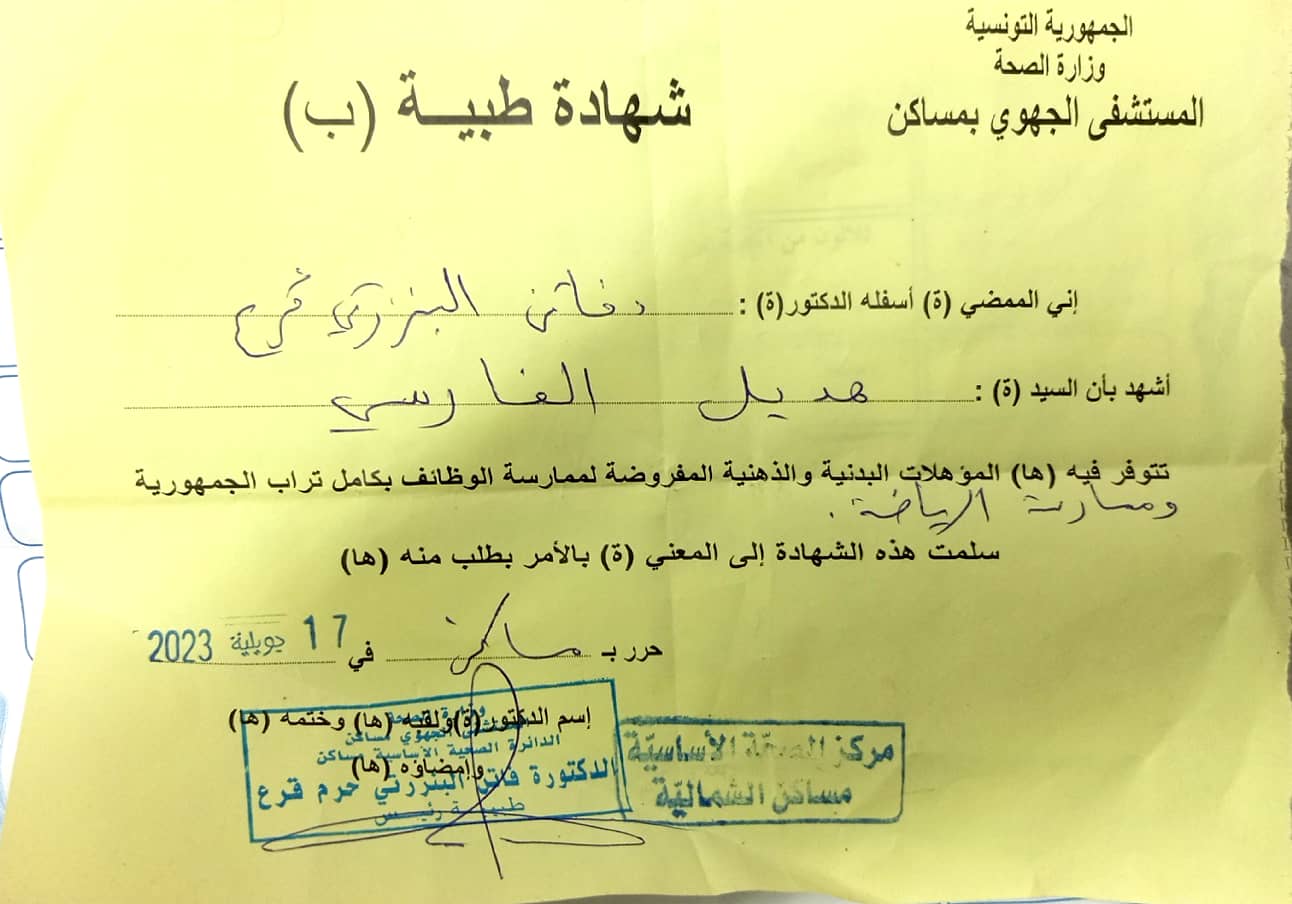 الجمهورية التونسية
وزارة الصحة
المستشفى الجهوي بمساكن
شهادة طبيــة (ب)
إني الممضي (ة) أسفله الدكتور(ة) : د فاتن البنزرتي قرع
أشهد بأن السيد (ة) : هديل الفارسي
تتوفر فيه (ها) المؤهلات البدنية والذهنية المفروضة لممارسة الوظائف بكامل تراب الجمهورية
وممارسة الرياضة .
سلمت هذه الشهادة إلى المعني (ة) بالأمر بطلب منه (ها)
حرر بـ مساكن في 17 جويلية 2023
إسم الدكتور (ة) ولقبه (ها) وختمه (ها)
وإمضاؤه (ها)
وزارة الصحة
المستشفى الجهوي مساكن
الدائرة الصحية الأساسية مساكن
الدكتورة فاتن البنزرتي حرم قرع
طبيبة رئيس
مركز الصحّة الأساسيّة
مساكن الشماليّة